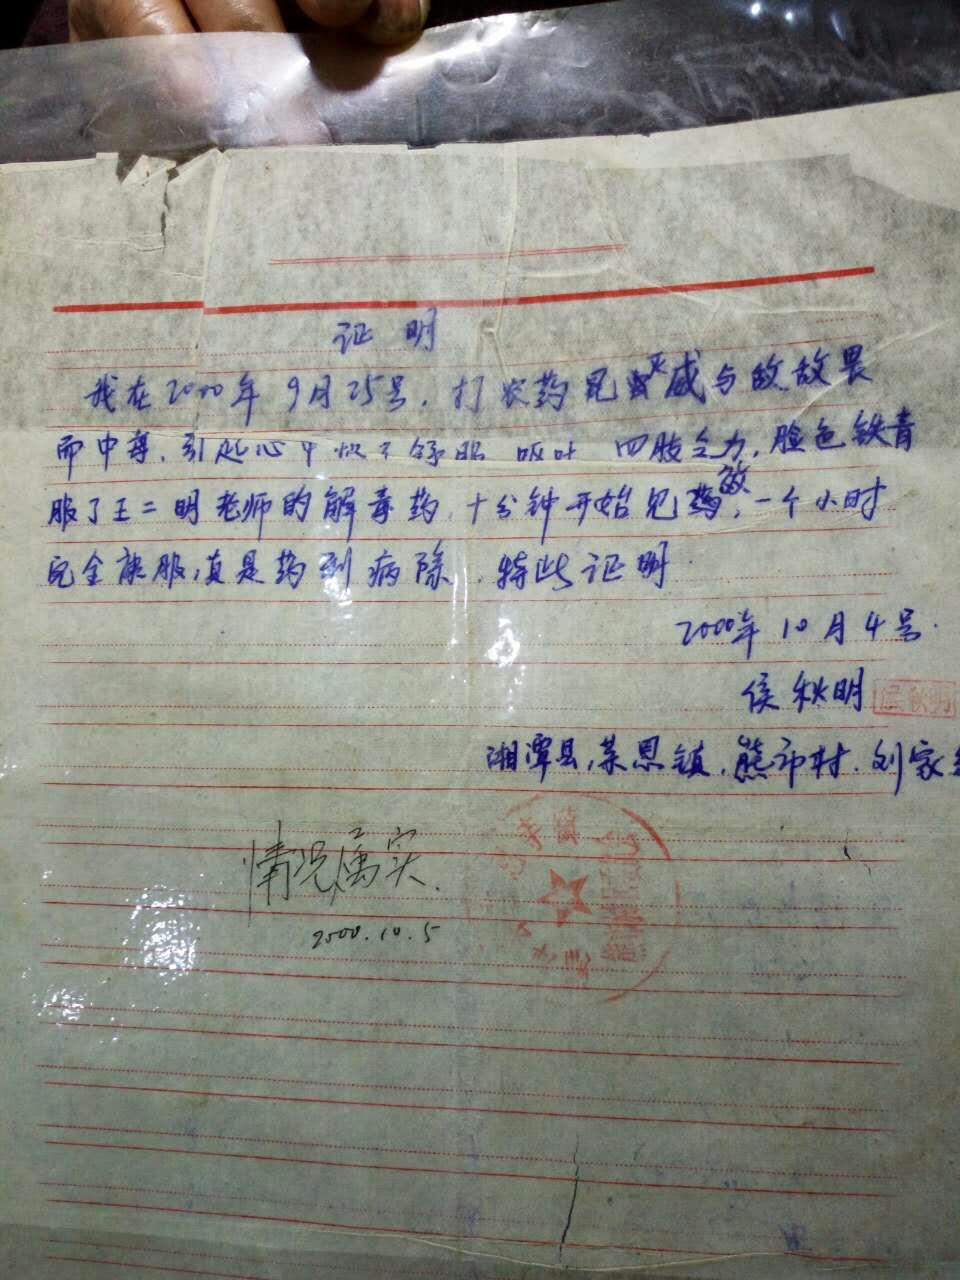 证明
我在2000年9月25号，打农药见严威与敌敌畏
而中毒，引起心中很不舒服 呕吐 四肢乏力，脸色铁青
服了王二明老师的解毒药，十分钟开始见药效，一个小时
完全康服，真是药到病除，特此证明
2000年10月4号.
侯秋明 侯秋明
湘潭县，茶恩镇，熊市村，刘家
情况属实.
2000.10.5